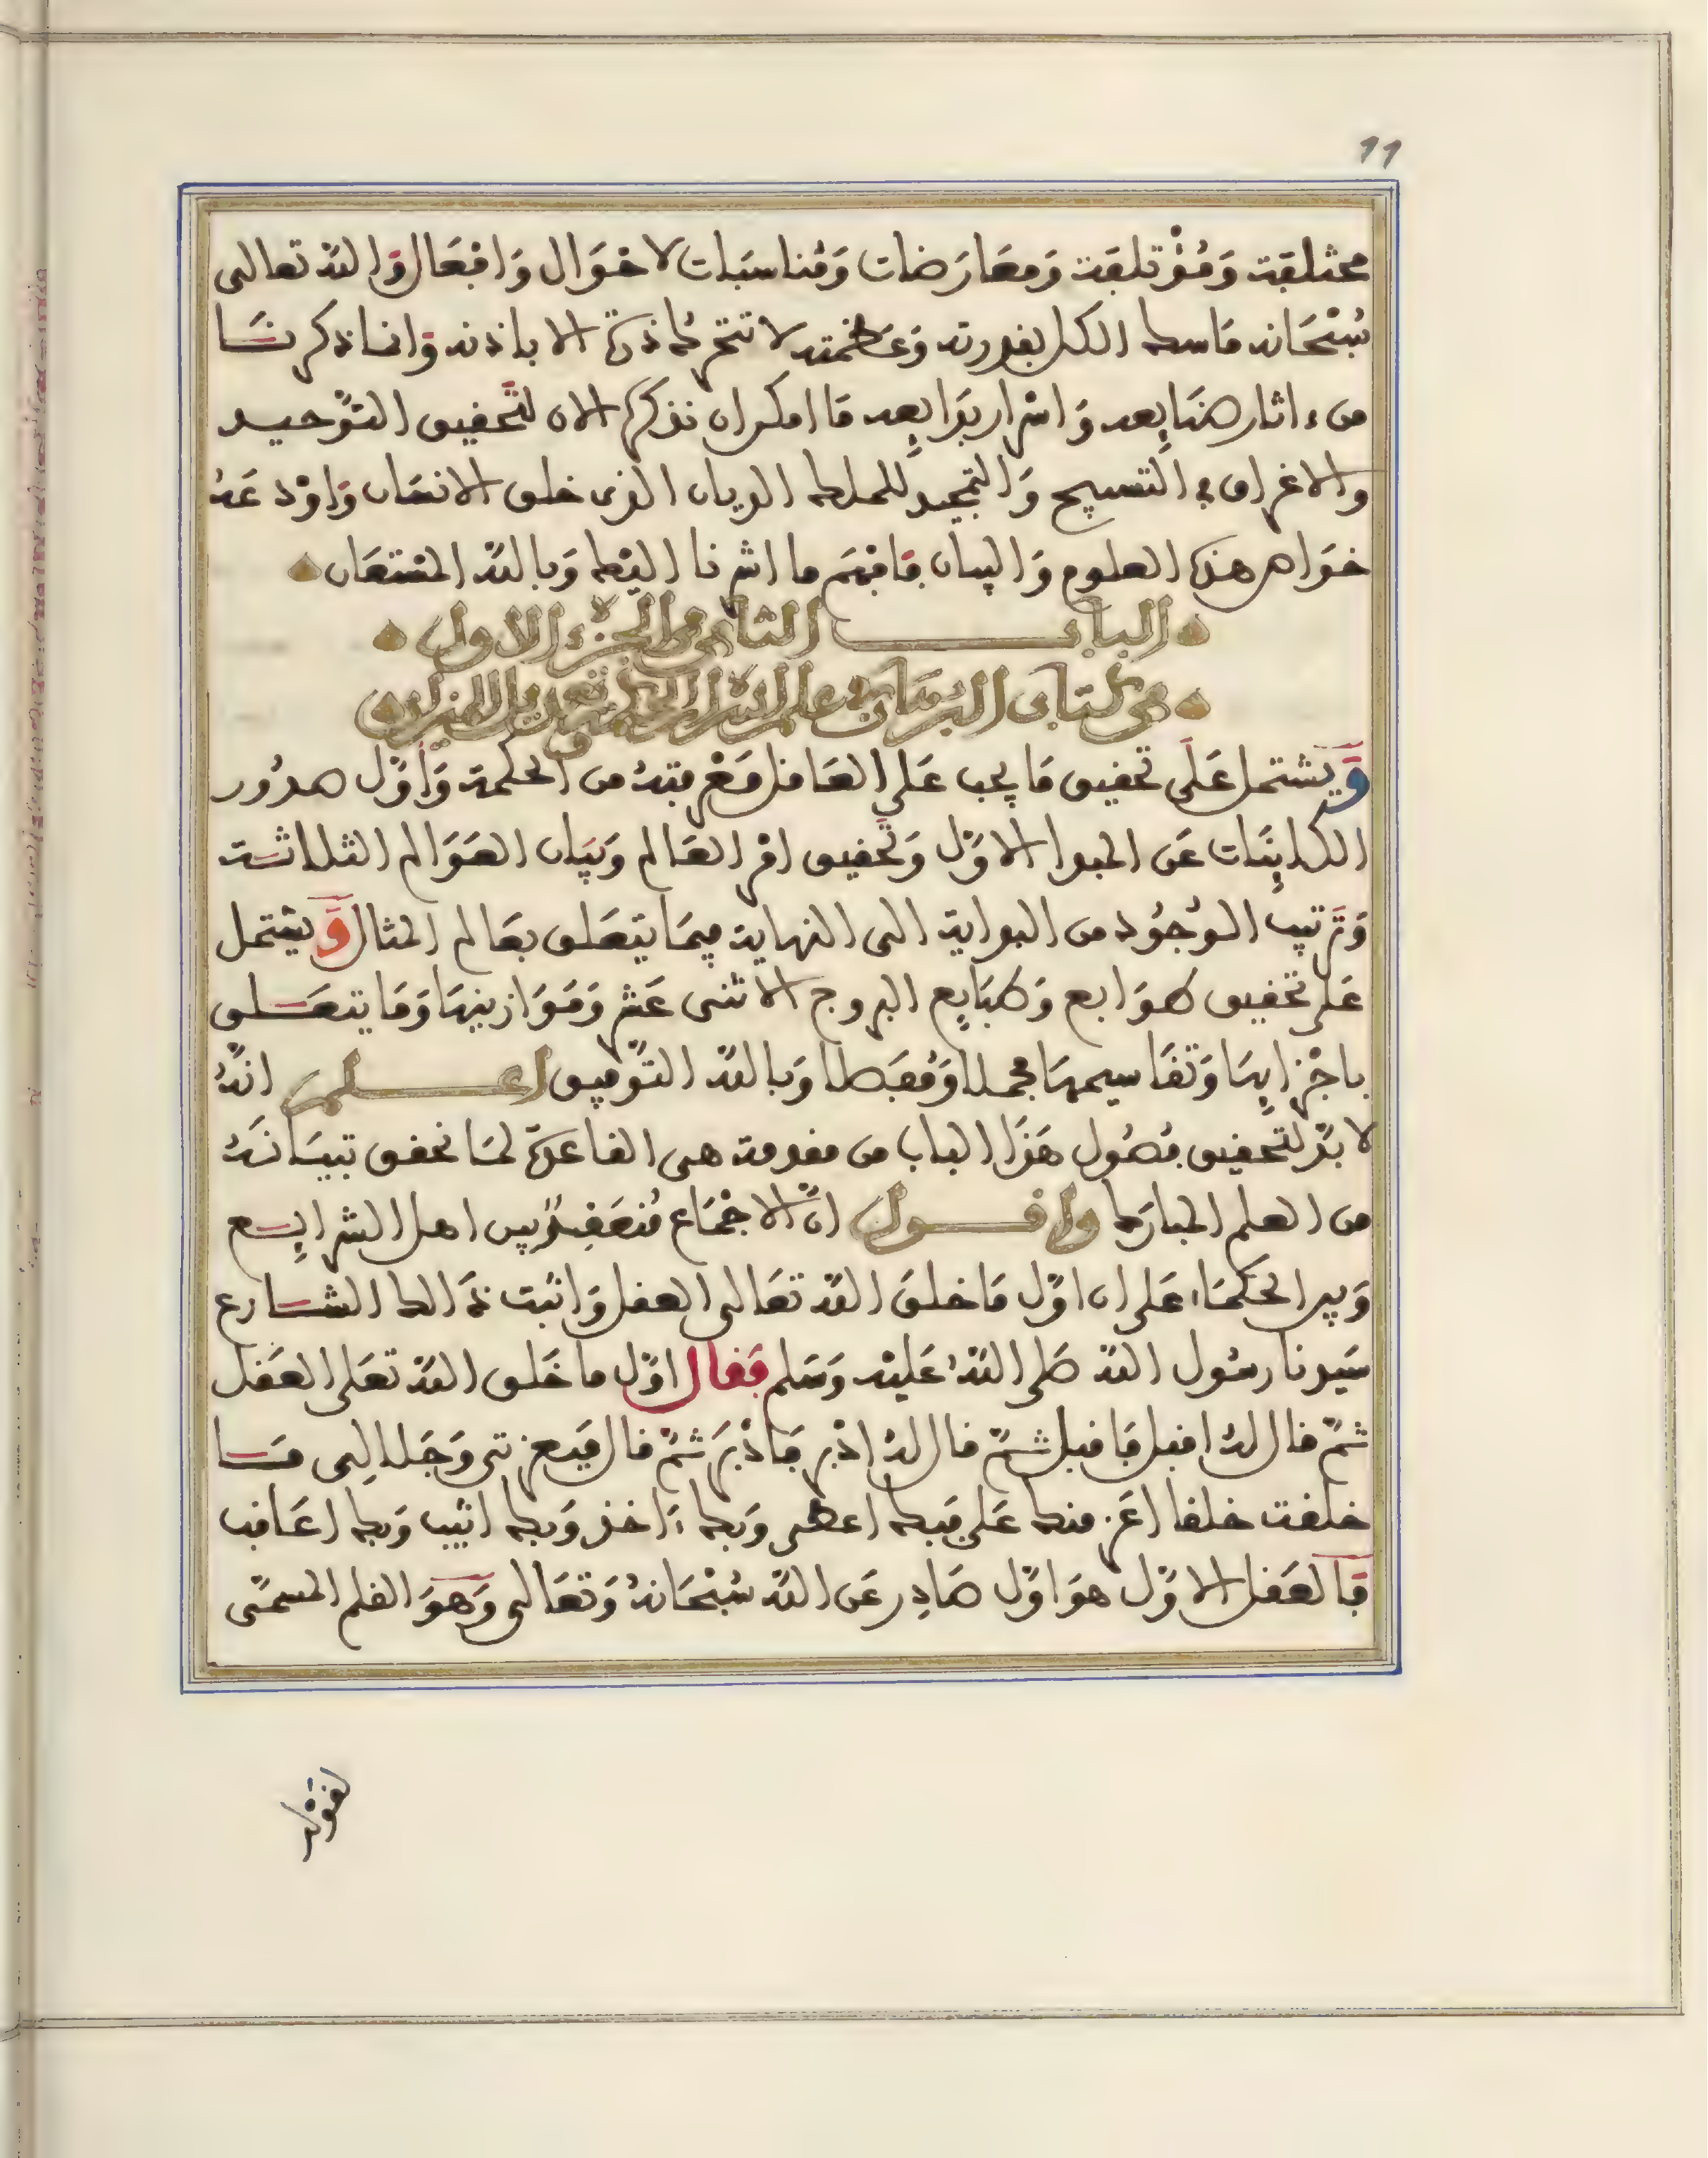 11
مختلفة وَمُؤْتلفة وَمعَارَضات وَمُناسبَات لاحْوَال وَافعَال وَالله تعالى
سُبْحَانه مَاسك الكل بقدرته وَعَظمته لا تتحرك ذرة الا باذنه وَانما ذكرنَا
من ءاثار صنَايعه وَاسْرار بدَايعه مَا امكن ان نذكره الان لتَّحقيق التوْحيد
والاغراق في التسبيح وَالتمجيد للملك الديان الذى خلق الانسَان وَاوْدَعَهُ
جَوَاهر هذه العلوم وَالبيان فَافهَم ما اشرنا اليْه وَبالله المسْتعَان
البابـــــ الثانى من الجزء الاول
من كتاب البرهان في علم الميزان
وَيشتمل عَلَى تحقيق مَا يجب عَلى العَاقل مَعْرفتهُ من الحكمة وَأوَّل صدُور
الكاينَات عَن المبدا الاوَّل وَتَحقيق امْر العَالم وَبَيَان العَوَالم الثلاثـة
وَتَرتيب الوُجُود من البداية الى النهاية فيمَا يتعَلق بعَالم المثال وَيشتمل
عَلى تحقيق طوَابع وَطبَايع البروج الاثنى عَشر وَمَوَازينهَا وَمَا يتعَلـق
باجْزايهَا وَتقَاسيمهَا مجملا وَمُفَصلا وَبالله التوْفيق اعـــلم انَّهُ
لا بدَّ لتحقيق فصُول هَذَا الباب من مقدمة هى القاعدة لمَا نحقق تبيَانَهُ
من العلم المبارَك واقـــول انَّ الاجْمَاع مُنعَقِدٌ بين اهل الشرايـع
وَبين الحكمَاء عَلى ان اوَّل مَا خلقَ الله تعَالى العقل وَاثبت ذَالك الشـارع
سَيدنا رسُول الله صَلى اللهُ عَليْه وَسَلم فَقال اوَّل ما خَلق الله تعَلى العَقل
ثمَّ قال لهُ اقبل فَاقبل ثمَّ قال لهُ ادْبر فَادْبَرَ ثمَّ قال فَبعزتى وَجَلالِى مَـا
خلقت خلقا اعَز منك عَلي فَبك اعطى وَبك ءَاخذ وَبك اثيب وَبك اعَاقب
فَالعَقل الاوَّل هوَ اوَّل صَادِر عَن الله سُبْحَانهُ وَتعَالى وَهوَ القلم المسمَّى
لقوْله